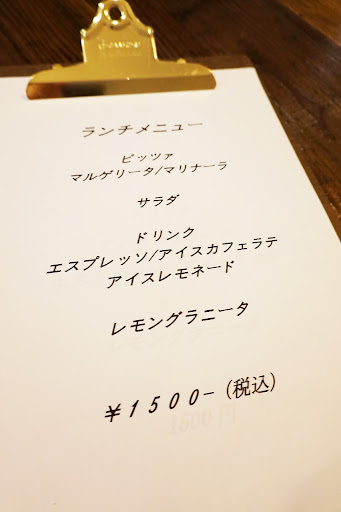 ランチメニュー
ピッツァ
マルゲリータ/マリナーラ
サラダ
ドリンク
エスプレッソ/アイスカフェラテ
アイスレモネード
レモングラニータ
¥1500-(税込)
1500円